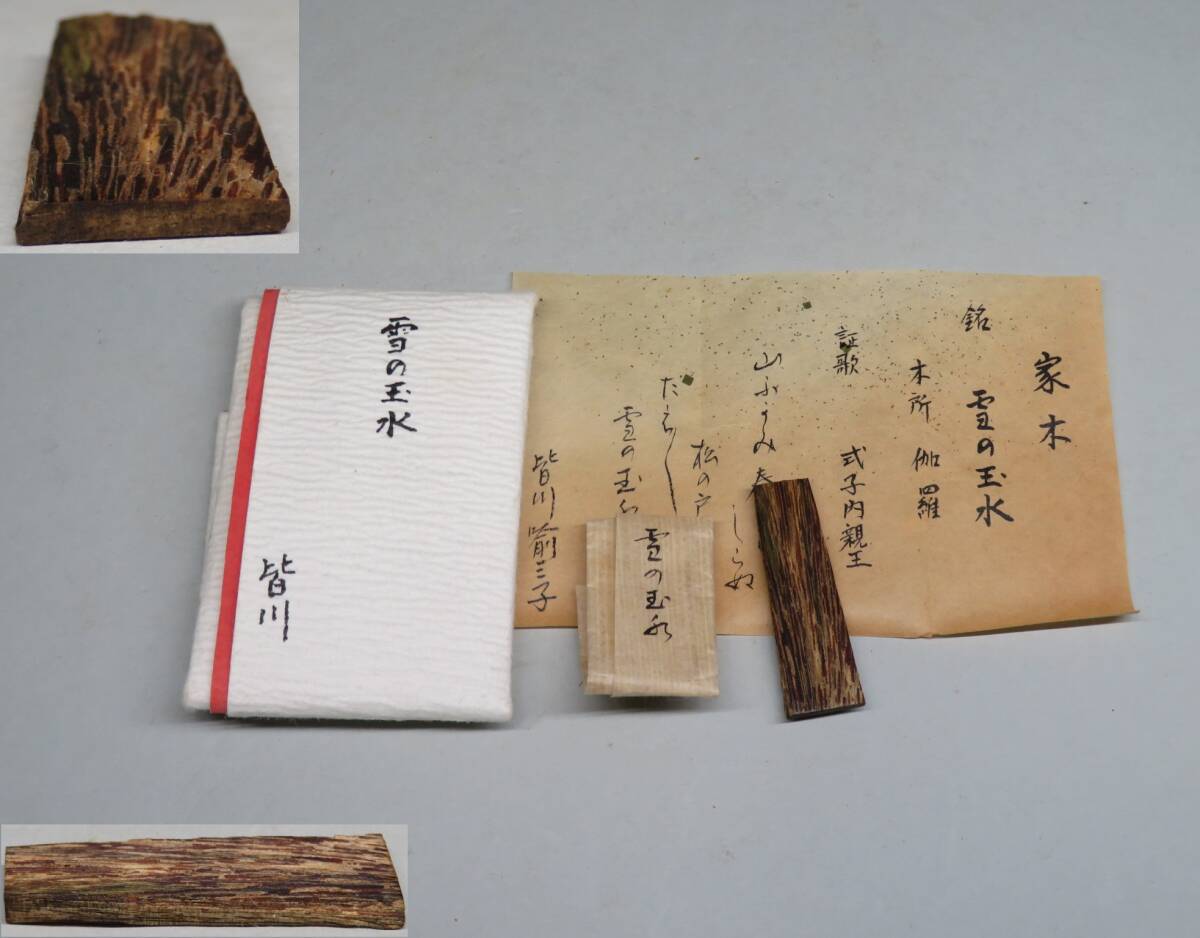 雪の玉水
皆川
家木
銘 雪の玉水
木所 伽羅
証歌 式子内親王
山ふかみ春 しらぬ
松の戸
雪の玉
皆川 三子
雪の玉水